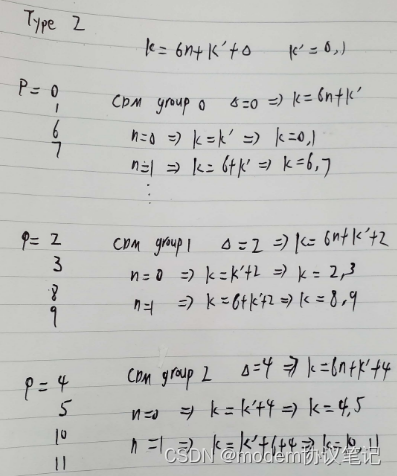 Type 2
k = 6n + k' + Δ k' = 0,1
P = 0
1
6
7
CDM group 0 Δ=0 => k = 6n+k'
n=0 => k = k' => k=0,1
n=1 => k = 6+k' => k=6,7
⋮
P = 2
3
8
9
CDM group 1 Δ=2 => k= 6n+k'+2
n=0 => k=k'+2 => k = 2,3
n=1 => k=6+k'+2 => k=8,9
P = 4
5
10
11
CDM group 2 Δ=4 => k=6n+k'+4
n=0 => k=k'+4 => k=4,5
n=1 => k=k'+6+4 => k=10,11
CSDN @modem协议笔记